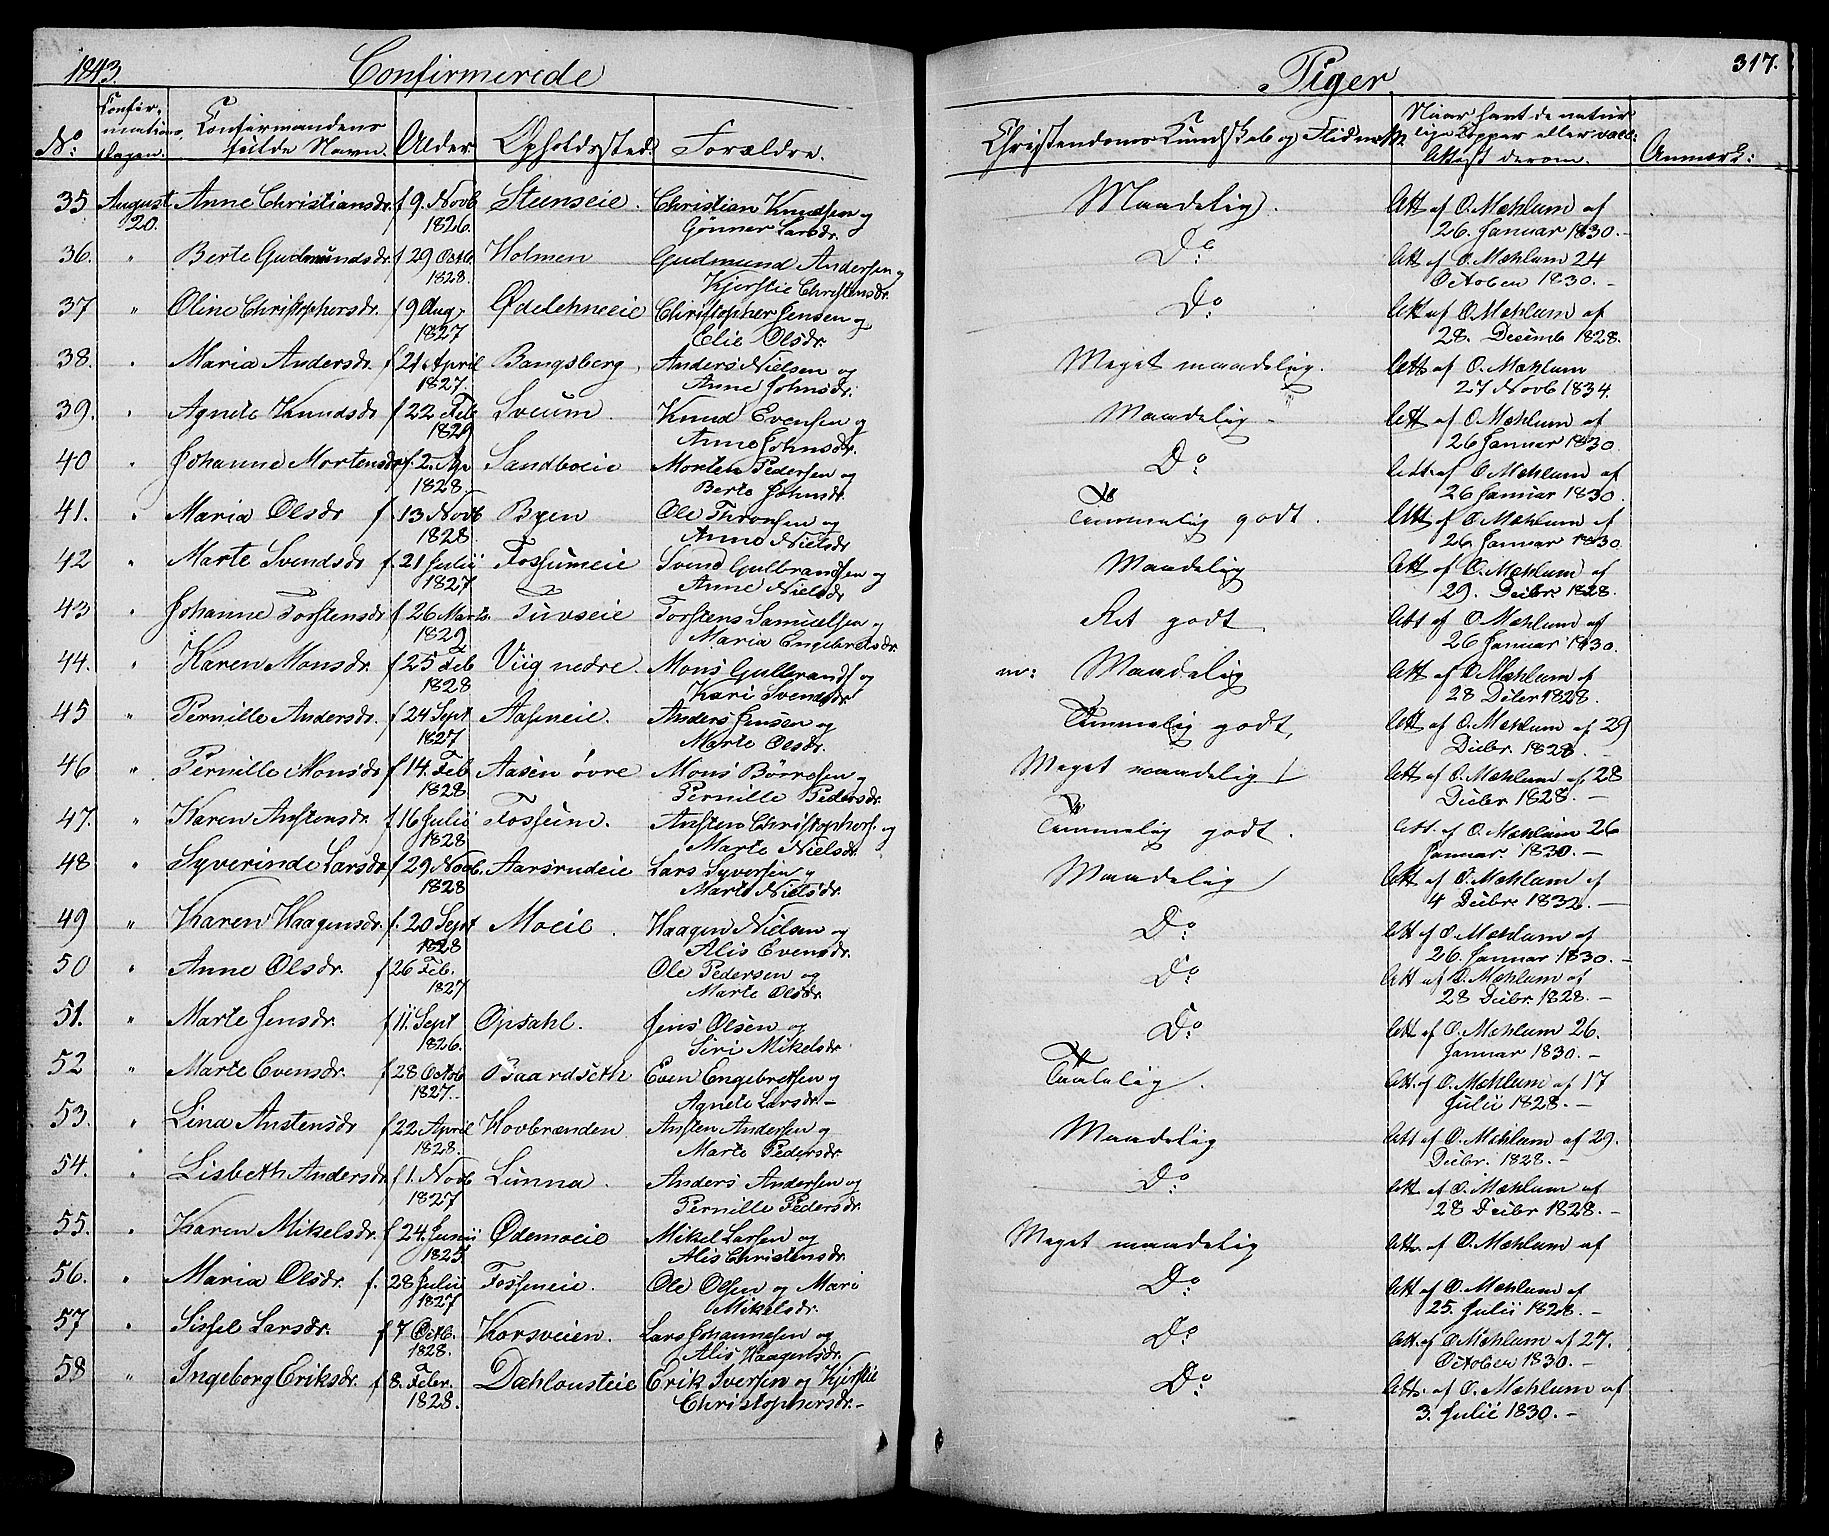 1843. Confirmerede Piger 317.
No. Confirmationsdagen. Confirmandens fulde Navn. Alder Opholdssted. Forældre. Christendoms Kundskab og Flid Naar havt de naturlige Kopper eller vacc: Attest derom. Anmærk:
35 August 20. Anne Christiansdr. f 9. Novb 1826. Steenseie. Christian Knudsen og Gunner Larsdr. Maadelig. Att af O. Mæhlum af 26. Januar 1830.-
36. " Berte Gudmundsdr. f 29 Octb. 1828. Holmen Gudmund Andersen og Kjerstie Christensdr. Do Att af O. Mæhlum 24 October 1830.-
37 " Oline Christophersdr. f 9 Aug. 1827 Ødelehneeie Christopher Jensen og Elie Olsdr. Do Att af O. Mæhlum af 28. Decemb 1828.
38. " Maria Andersdr f 21 April 1827. Bangsberg. Anders Nielsen og Anne Johnsdr. Meget maadelig. Att af O. Mæhlum 27 Novb 1834.
39. " Agnete Knudsdr f 22 Feb 1829 Sveum. Knud Evensen og Anne Johnsdr. Maadelig Att af O. Mæhlum af 26 Januar 1830
40 " Johanne Mortensdr. f. 2. Ap 1828. Sandboeie Morten Pedersen og Berte Johnsdr. Do Att. af O. Mæhlum af 26 Januar 1830.
41. " Maria Olsdr f 13 Novb 1828. Byen Ole Thronsen og Anne Nielsdr Temmelig godt. Att af O. Mæhlum af 26. Januar 1830
42 " Marte Svendsdr f. 21 Julii 1827 Fossumeie Svend Gulbrandsen og Anne Nielsdr Maadelig Att af O. Mæhlum af 29. Decbr. 1828.
43 " Johanne Torstensdr f 26 Marts. 1829 Tuvseie Torstens Samuelsen og Maria Engebretsdr. Ret godt Att af O Mæhlum af 26 Januar 1830.
44. " Karen Monsdr. f 25 Feb 1828 Viig nedre. Mons Gulbrands. og Kari Svendsdr. m: Maadelig Att af O. Mæhlum af 28 Decbr 1828.
45 " Pernille Andersdr. f 24 Sept 1827 Aaseneie. Anders Jensen og Marte Olsdr. Temmelig godt, Att af O. Mæhlum af 29 Decbr. 1828.
46 " Pernille Monsdr f 14. Feb 1828. Aasen øvre Mons Børresen og Pernille Pedersdr. Meget maadelig Att af O. Mæhlum af 28 Decbr 1828.-
47. " Karen Anstensdr. f 16 Julii 1828 Fossum. Ansten Christophers. og Marte Nielsdr. Temmelig godt. Att. af O. Mæhlum 26 Januar. 1830.-
48 " Syverinde Larsdr f 29 Novb. 1828 Aarsrudeie Lars Syversen og Marte Nielsdr. Maadelig Att af O. Mæhlum af 4 Decbr. 1832.-
49 " Karen Haagensdr. f. 20 Sept 1828 Moeie. Haagen Nielsen og Alis Evensdr. Do Att af O. Mæhlum af 26. Januar 1830.-
50 " Anne Olsdr. f 26 Feb. 1827 Ole Pedersen og Marte Olsdr. Do Att af O. Mæhlum af 28 Decbr. 1828.-
51. " Marte Jensdr. f 11. Sept 1826. Opsahl. Jens Olsen og Siri Mikelsdr Do Att af O. Mæhlum 26. Januar 1830.-
52 " Marte Evensdr. f 28 Octob 1827. Baardseth Even Engebretsen og Agnete Larsdr.- Taalelig. Att. af O. Mæhlum af 17 Julii 1828.-
53. " Lina Anstensdr f 22 April 1828. Hovbrænden Ansten Andersen og Marte Pedersdr. Maadelig Att af O. Mæhlum af 29. Decbr. 1828.-
54. " Lisbeth Andersdr f 1. Novb 1827 Lunna. Anders Andersen og Pernille Pedersdr. Do Att af O. Mæhlum af 28 Decbr 1828.-
55. " Karen Mikelsdr. f 24. Junii 1825 Ødemoeie Mikel Larsen og Alis Christensdr. Meget maadelig Att. af O. Mæhlum af
56. " Maria Olsdr. f. 28 Julii 1827 Fosseneie. Ole Olsen og Mari Mikelsdr. Do Att af O. Mæhlum af 25. Julii 1828.-
57 " Sissel Larsdr. f 7 Octb. 1828. Korsveien. Lars Johannesen og Alis Haagensdr. Do Att. af O. Mæhlum af 27. October 1830.-
58 " Ingeborg Eriksdr. f 8. Febr. 1828. Dæhlousteie Erik Iversen og Kjerstie Christophersdr.- Do Att. af O. Mæhlum af 3. Julii 1830.-